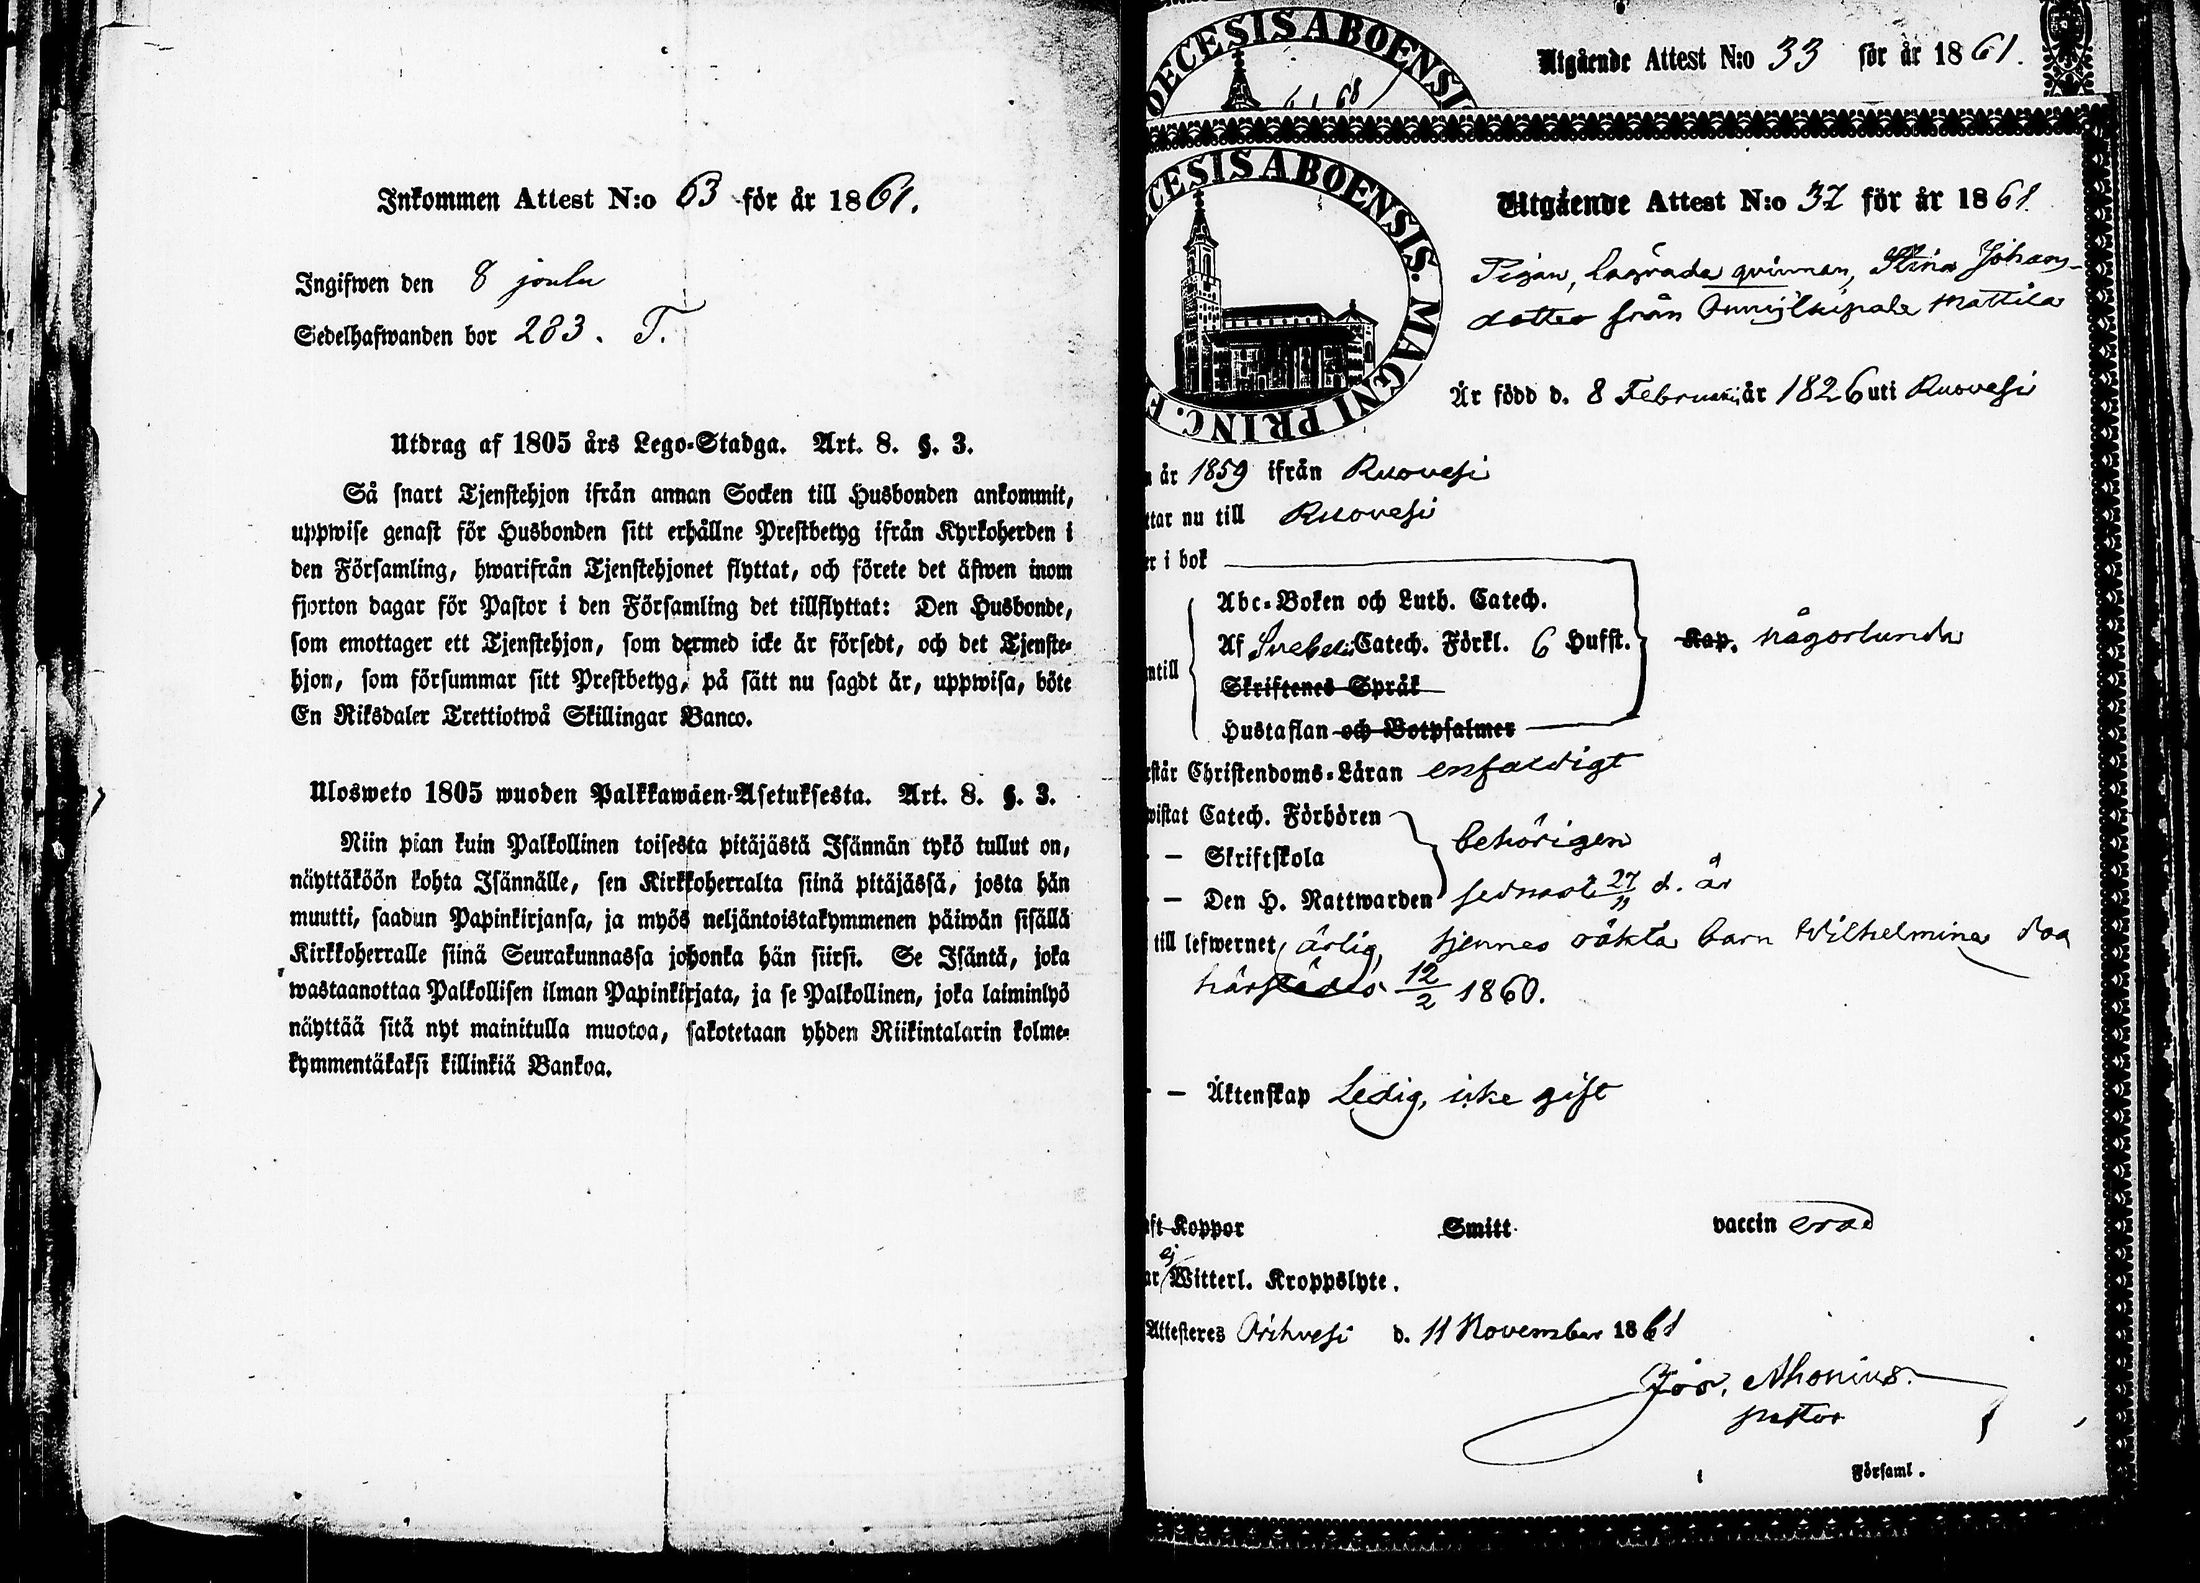 Inkommen Attest N:o 63 för år 1861.
Ingifwen den 8 joulu
Sedelhafwanden bor 283. T.
Utdrag af 1805 års Lego-Stadga. Art. 8. §. 3.
Så snart Tjenstehjon ifrån annan Socken till Husbonden ankommit,
uppwise genast för Husbonden sitt erhållne Prestbetyg ifrån Kyrkoherden i
den Församling, hwarifrån Tjenstehjonet flyttat, och förete det äfwen inom
fjorton dagar för Pastor i den Församling det tillflyttat: Den Husbonde,
som emottager ett Tjenstehjon, som dermed icke är försedt, och det Tjenste-
hjon, som försummar sitt Prestbetyg, på sätt nu sagdt är, uppwisa, böte
En Riksdaler Trettiotwå Skillingar Banco.
Ulosweto 1805 wuoden Palkkawäen-Asetuksesta. Art. 8. §. 3.
Niin pian kuin Palkollinen toisesta pitäjästä Isännän tykö tullut on,
näyttäköön kohta Isännälle, sen Kirkkoherralta siinä pitäjässä, josta hän
muutti, saadun Papinkirjansa, ja myös neljäntoistakymmenen päiwän sisällä
Kirkkoherralle siinä Seurakunnassa johonka hän siirsi. Se Isäntä, joka
wastaanottaa Palkollisen ilman Papinkirjata, ja se Palkollinen, joka laiminlyö
näyttää sitä nyt mainitulla muotoa, sakotetaan yhden Riikintalarin kolme-
kymmentäkaksi killinkiä Bankoa.
OECESIS ABOENSI
Utgående Attest N:o 33 för år 1861.
CESIS ABOENSIS. MAGNI PRINC. F
Utgående Attest N:o 32 för år 1861.
Pigan, lägrade qvinnan, Stina Johans-
dotter från Mattila
Är född d. 8 Februarii år 1826 uti Ruovesi
n år 1859 ifrån Ruovesi
ttar nu till Ruovesi
er i bok
Abc-Boken och Luth. Catech.
Af Svebelii Catech. Förkl. 6 Hufst. Kap. någorlunda
ntill
Skriftenes Språk
Hustaflan och Botpsalmer
rstår Christendoms-Läran enfaldigt
wistat Catech. Förhören
behörigen
— Skriftskola
— Den H. Nattwarden sednast 27/11 d. å
till lefwernet ärlig, hennes oäkta barn Wilhelmina
härstädes 12/2 1860.
— Äktenskap Ledig, icke gift
ft Koppor Smitt vaccin erad
ar ej Witterl. Kroppslyte.
Attesteres Orihvesi d. 11 November 1861
Alhonius.
pastor
i Församl.